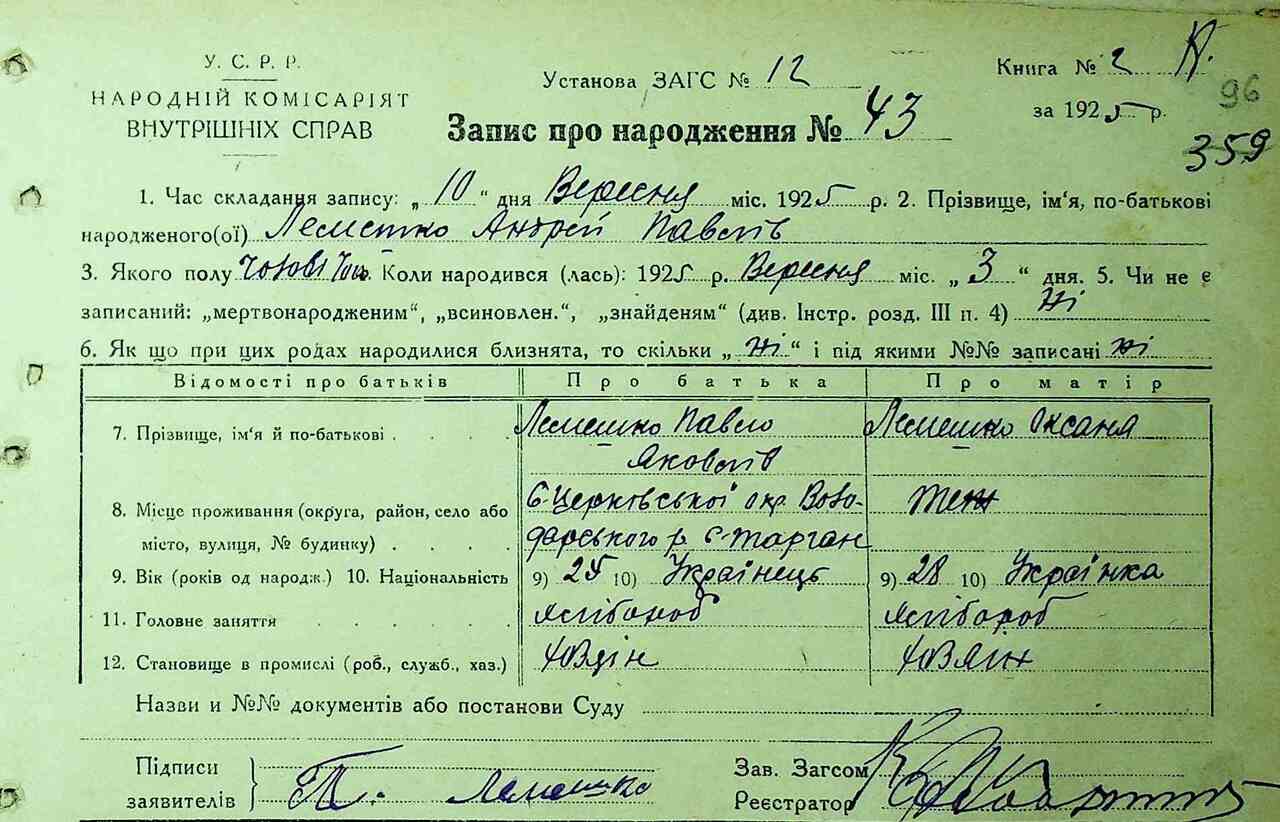 У. С. Р. Р.
НАРОДНІЙ КОМІСАРІЯТ
ВНУТРІШНІХ СПРАВ
Установа ЗАГС № 12
Запис про народження № 43
Книга № 2
за 1925 р.
96
359
1. Час складання запису: „ 10 “ дня Вересня міс. 1925 р. 2. Прізвище, ім'я, по-батькові
народженого(ої) Лемешко Андрей Павлів
3. Якого полу Коли народився (лась): 1925 р. Вересня міс. „ 3 “ дня. 5. Чи не є
записаний: „мертвонародженим“, „всиновлен.“, „знайденям“ (див. Інстр. розд. III п. 4) ні
6. Як що при цих родах народилися близнята, то скільки „ ні “ і під якими №№ записані ні
Відомості про батьків Про батька Про матір
7. Прізвище, ім'я й по-батькові . . . . Лемешко Павло Лемешко Оксана
Яковлів
8. Місце проживання (округа, район, село або Б-Церківської окр. Воло- теж
місто, вулиця, № будинку) . . . . дарського р. с. Тарган
9. Вік (років од народж.) 10. Національність 9) 25 10) Українець 9) 28 10) Українка
11. Головне заняття . . . . . . хлібороб хлібороб
12. Становище в промислі (роб., служб., хаз.)
Назви и №№ документів або постанови Суду
Підписи
заявителів Лемешко
Зав. Загсом
Реєстратор